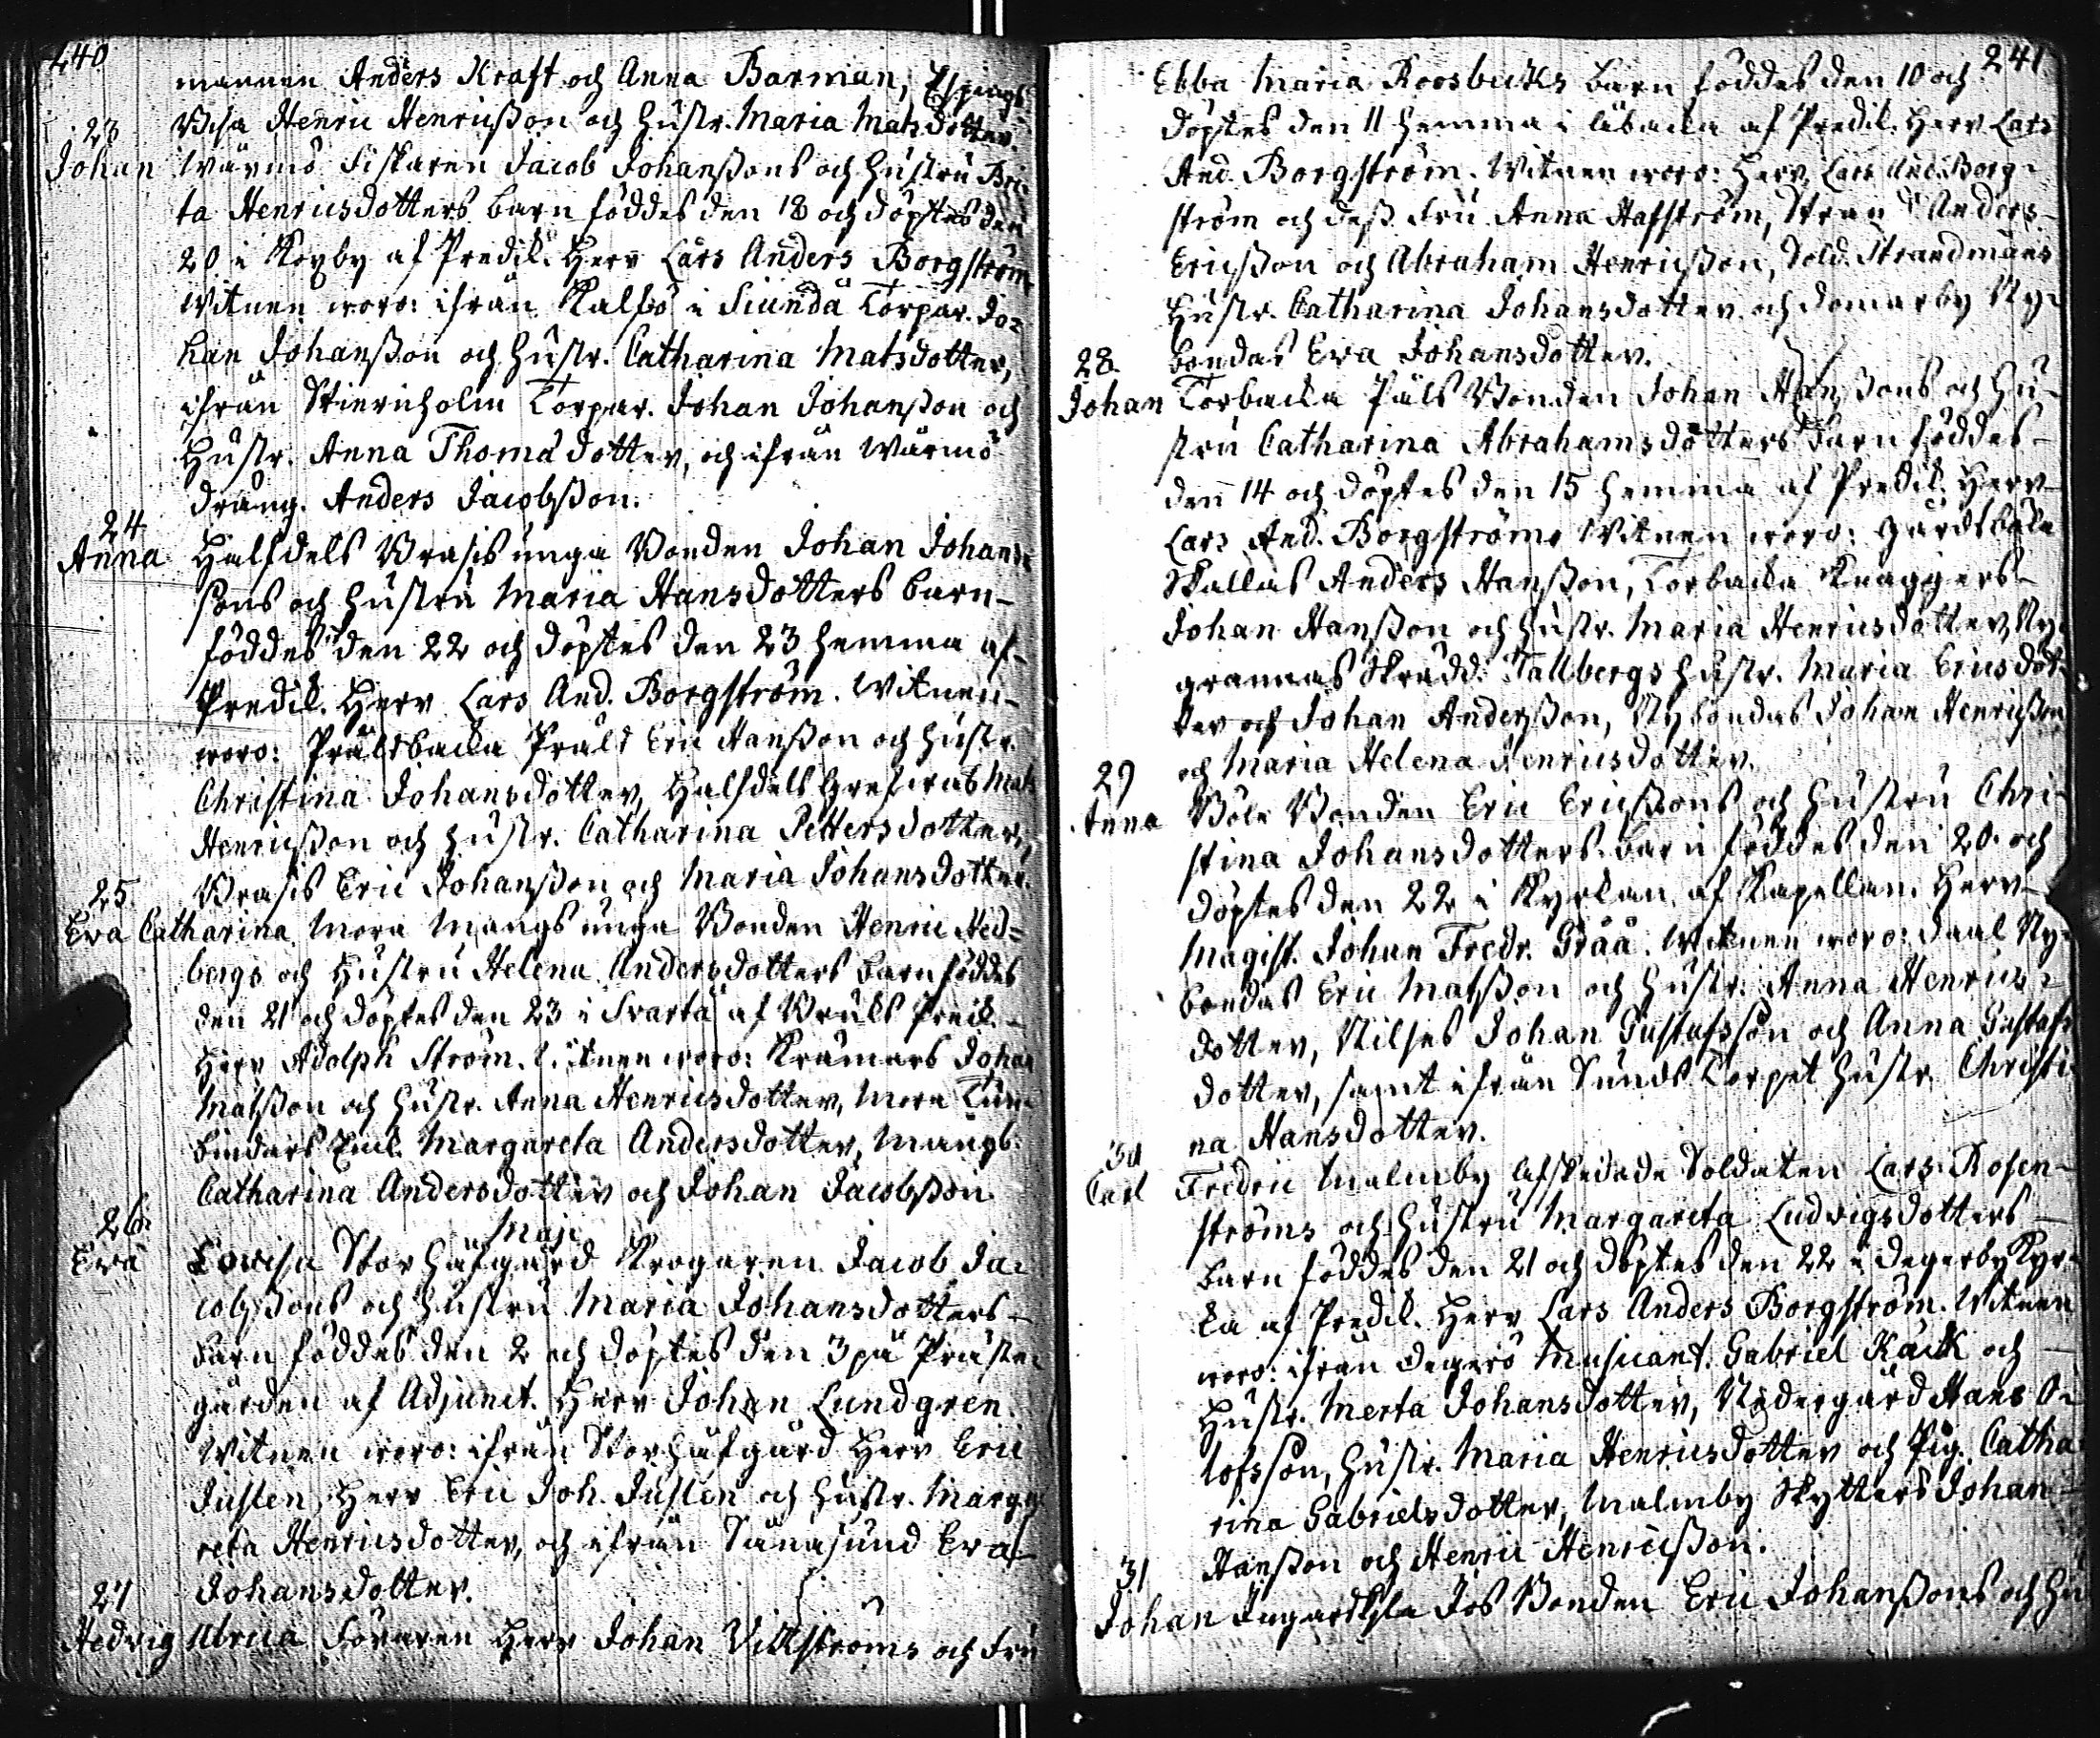 240
mannen Anders Kraft och Anna Barman, Espings
Visa Henric Henricsson och hustr. Maria Matsdotter.
23
Johan Wärmö Fiskaren Jacob Johanssons och hustru Bri-
ta Henricsdotters barn föddes den 18 och döptes den
20 i Kopby af Predik. Herr Lars Anders Borgström
Witnen woro: ifrån Kalfö i Siundå Torpar. Jo-
han Johansson och hustr. Catharina Matsdotter,
ifrån Stierncholm Torpar. Johan Johansson och
Hustr. Anna Thomædotter, och ifrån Wärmö
dräng. Anders Jacobsson.
24
Anna Halfdels Brasis unga Bonden Johan Johans-
sons och hustru Maria Hansdotters barn
föddes den 22 och döptes den 23 hemma af
Predik. Herr Lars And. Borgström. Witnen
woro: Präldbacka Präld Eric Hansson och hustr.
Christina Johansdotter, Halfdels Mats
Henricsson och hustr. Catharina Pettersdotter,
Brasis Eric Johansson och Maria Johansdotter.
25.
Eva Catharina. Mora Mangs unga Bonden Henric Hed-
bergs och Hustru Helena Andersdotters barn föddes
den 21 och döptes den 23 i Svartå af Bruks Predik.
Herr Adolph Ström. Witnen woro: Krämars Johan
Matsson och hustr. Anna Henricsdotter, Mora Tun-
bindars Enk. Margareta Andersdotter, Mangs
Catharina Andersdotter och Johan Jacobsson
Maji
26.
Eva Lovisa Storhafgård Krögaren Jacob Ja-
cobssons och hustru Maria Johansdotters
barn föddes den 2 och döptes den 3 på Präste-
gården af Adjunct. Herr Johan Lundgren.
Witnen woro: ifrån Storhafgård Herr Eric
Juslen, Herr Eric Joh. Juslen och hustr. Marga-
reta Henricsdotter, och ifrån Sånäsund Eva
Johansdotter.
27
Hedvig Ulrica Föraren Herr Johan Vikströms och Fru
241
Ebba Maria Roosbucks barn föddes den 10 och
döptes den 11 hemma i af Predik. Herr Lars
And. Borgström. Witnen woro: Herr Lars And. Borg-
ström och dess Fru Anna Hafström, Anders
Ericsson och Abraham Henricsson, Sold. Strandmans
hustr. Catharina Johansdotter och Domarby Ny-
bondas Eva Johansdotter.
28.
Johan Torbacka Påls Bonden Johan Hanssons och Hu-
stru Catharina Abrahamsdotters barn föddes
den 14 och döptes den 15 hemma af Predik. Herr
Lars And. Borgström. Witnen woro: Gårdsbacka
Skallas Anders Hansson, Torbacka Knaggers
Johan Hansson och hustr. Maria Henricsdotter, Ny-
grannas Skrädd. Tallbergs hustr. Maria Ericsdot-
ter och Johan Andersson, Nybondas Johan Henricsson
och Maria Helena Henricsdotter.
29
Anna Böle Bonden Eric Ericssons och hustru Chri-
stina Johansdotters barn föddes den 20. och
döptes den 22 i Kyrkan af Kapellan. Herr
Magist. Johan Fredr. Gråå. Witnen woro: Daal Ny-
bondas Eric Matsson och hustr. Anna Henrics-
dotter, Nilses Johan Gustafsson och Anna Gustafs-
dotter, samt ifrån Sunds Torpet hustr. Christi-
na Hansdotter.
30
Carl Fredric Malmby Afskedade Soldaten Lars Rosen-
ströms och hustru Margareta Ludvigsdotters
barn föddes den 21 och döptes den 22 i Degerby Kyr-
ka af Predik. Herr Lars Anders Borgström. Witnen
woro: ifrån Degerö Musicant. Gabriel Käck och
Hustr. Merta Johansdotter, Nedergård Hans O-
lofsson, hustr. Maria Henricsdotter och Pig. Catha-
rina Gabrielsdotter, Malmby Skyttars Johan
Hansson och Henric Henricsson.
31
Johan Ingarskyla Jos Bonden Eric Johanssons och hu